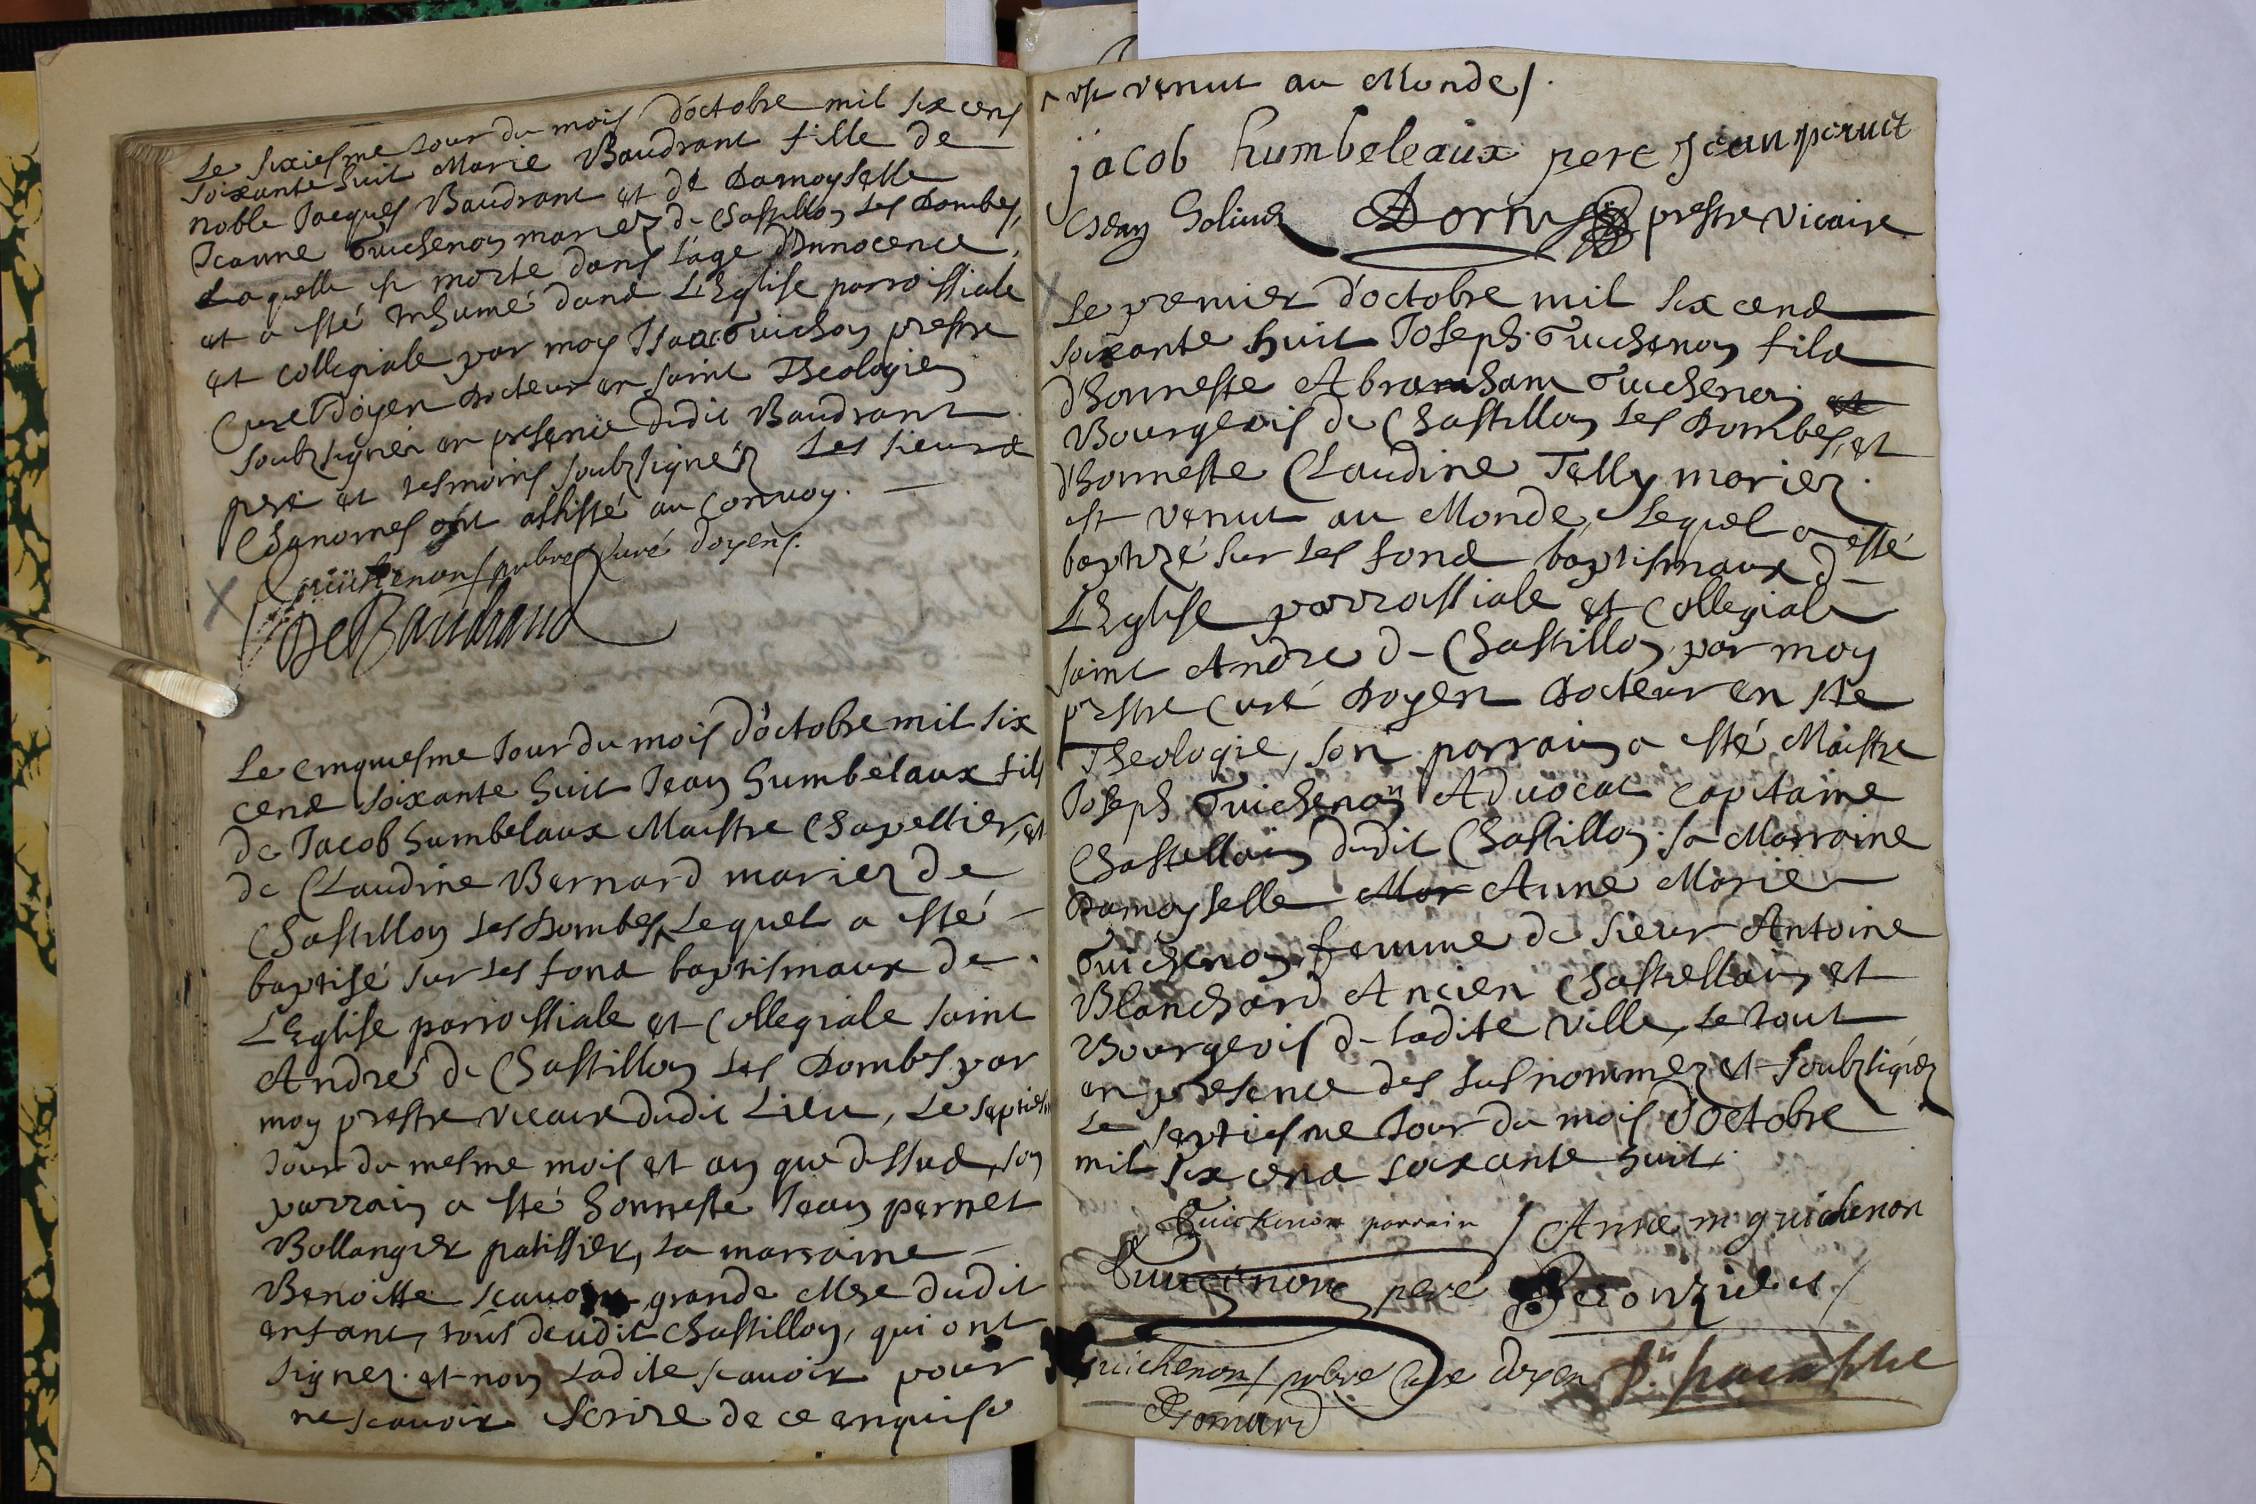 Le sixiesme Jour du mois d'octobre mil six cens
soixante huit Marie Baudrant fille de
noble Jacques Baudrant et de Damoyselle
Jeanne Guichenon mariez de Chastillon les Dombes,
Laquelle est morte dans l'age d'Innocence,
et a esté Inhumé dans L'Eglise parroissiale
et collegiale par moy Isaac Guichon prestre
Curé Doyen Docteur en saint Theologie
soubzsigné en presence dudit Baudrant
pere et tesmoins soubzsignéz Les sieurs
Chanoines ont assisté au Convoy.
Guichenon pbre Curé doyen.
De Baudrand
Le cinquiesme Jour du mois d'octobre mil six
cens soixante huit Jean humbelaux fils
de Jacob humbelaux Maistre Chapellier, et
de Claudine Bernard mariez de
Chastillon les Dombes, Lequel a esté
baptisé sur les fons baptismaux de
L'Eglise parrossiale et Collegiale saint
André de Chastillon les Dombes par
moy prestre vicaire dudit Lieu, Le septiesme
Jour du mesme mois et an que dessus, son
parrain a esté honneste Jean pernet
Bollangier patissier, La marraine
Benoitte grande Mere dudit
enfant, tous deudit Chastillon, qui ont
signez et non Ladite scavoir pour
ne scavoir Scrire de ce enquise
est venut au Monde /.
jacob humbeleaux pere Jean peruet
Dornes prestre vicaire
Le premier d'octobre mil six cens
soixante huit Joseph Guichenon fils
d'honneste Abramham Guichenon et
Bourgeois de Chastillon les Dombes, et
d'honneste Claudine Telly mariez.
est venut au Monde, Lequel a esté
baptizé sur les fons baptismaux d-
L'Eglise parrossiale et Collegiale
saint André d- Chastillon par moy
prestre Curé Doyen Docteur en Ste
Theologie, son parrain a esté Maistre
Joseph Guichenon Advocat capitaine
Chastellain dudit Chastillon sa Marraine
Damoyselle Mar Anne Marie
Guichenon femme de sieur Antoine
Blanchard Ancien Chastellain et
Bourgeois d- Ladite ville, Le tout
en presence des susnommez et soubzsignez
Le septiesme Jour du mois d'octobre
mil six cens soixante huit.
Guichenon parrain / Anne m guichenon
Guichenon pere
Guichenon / pbre Curé doyen